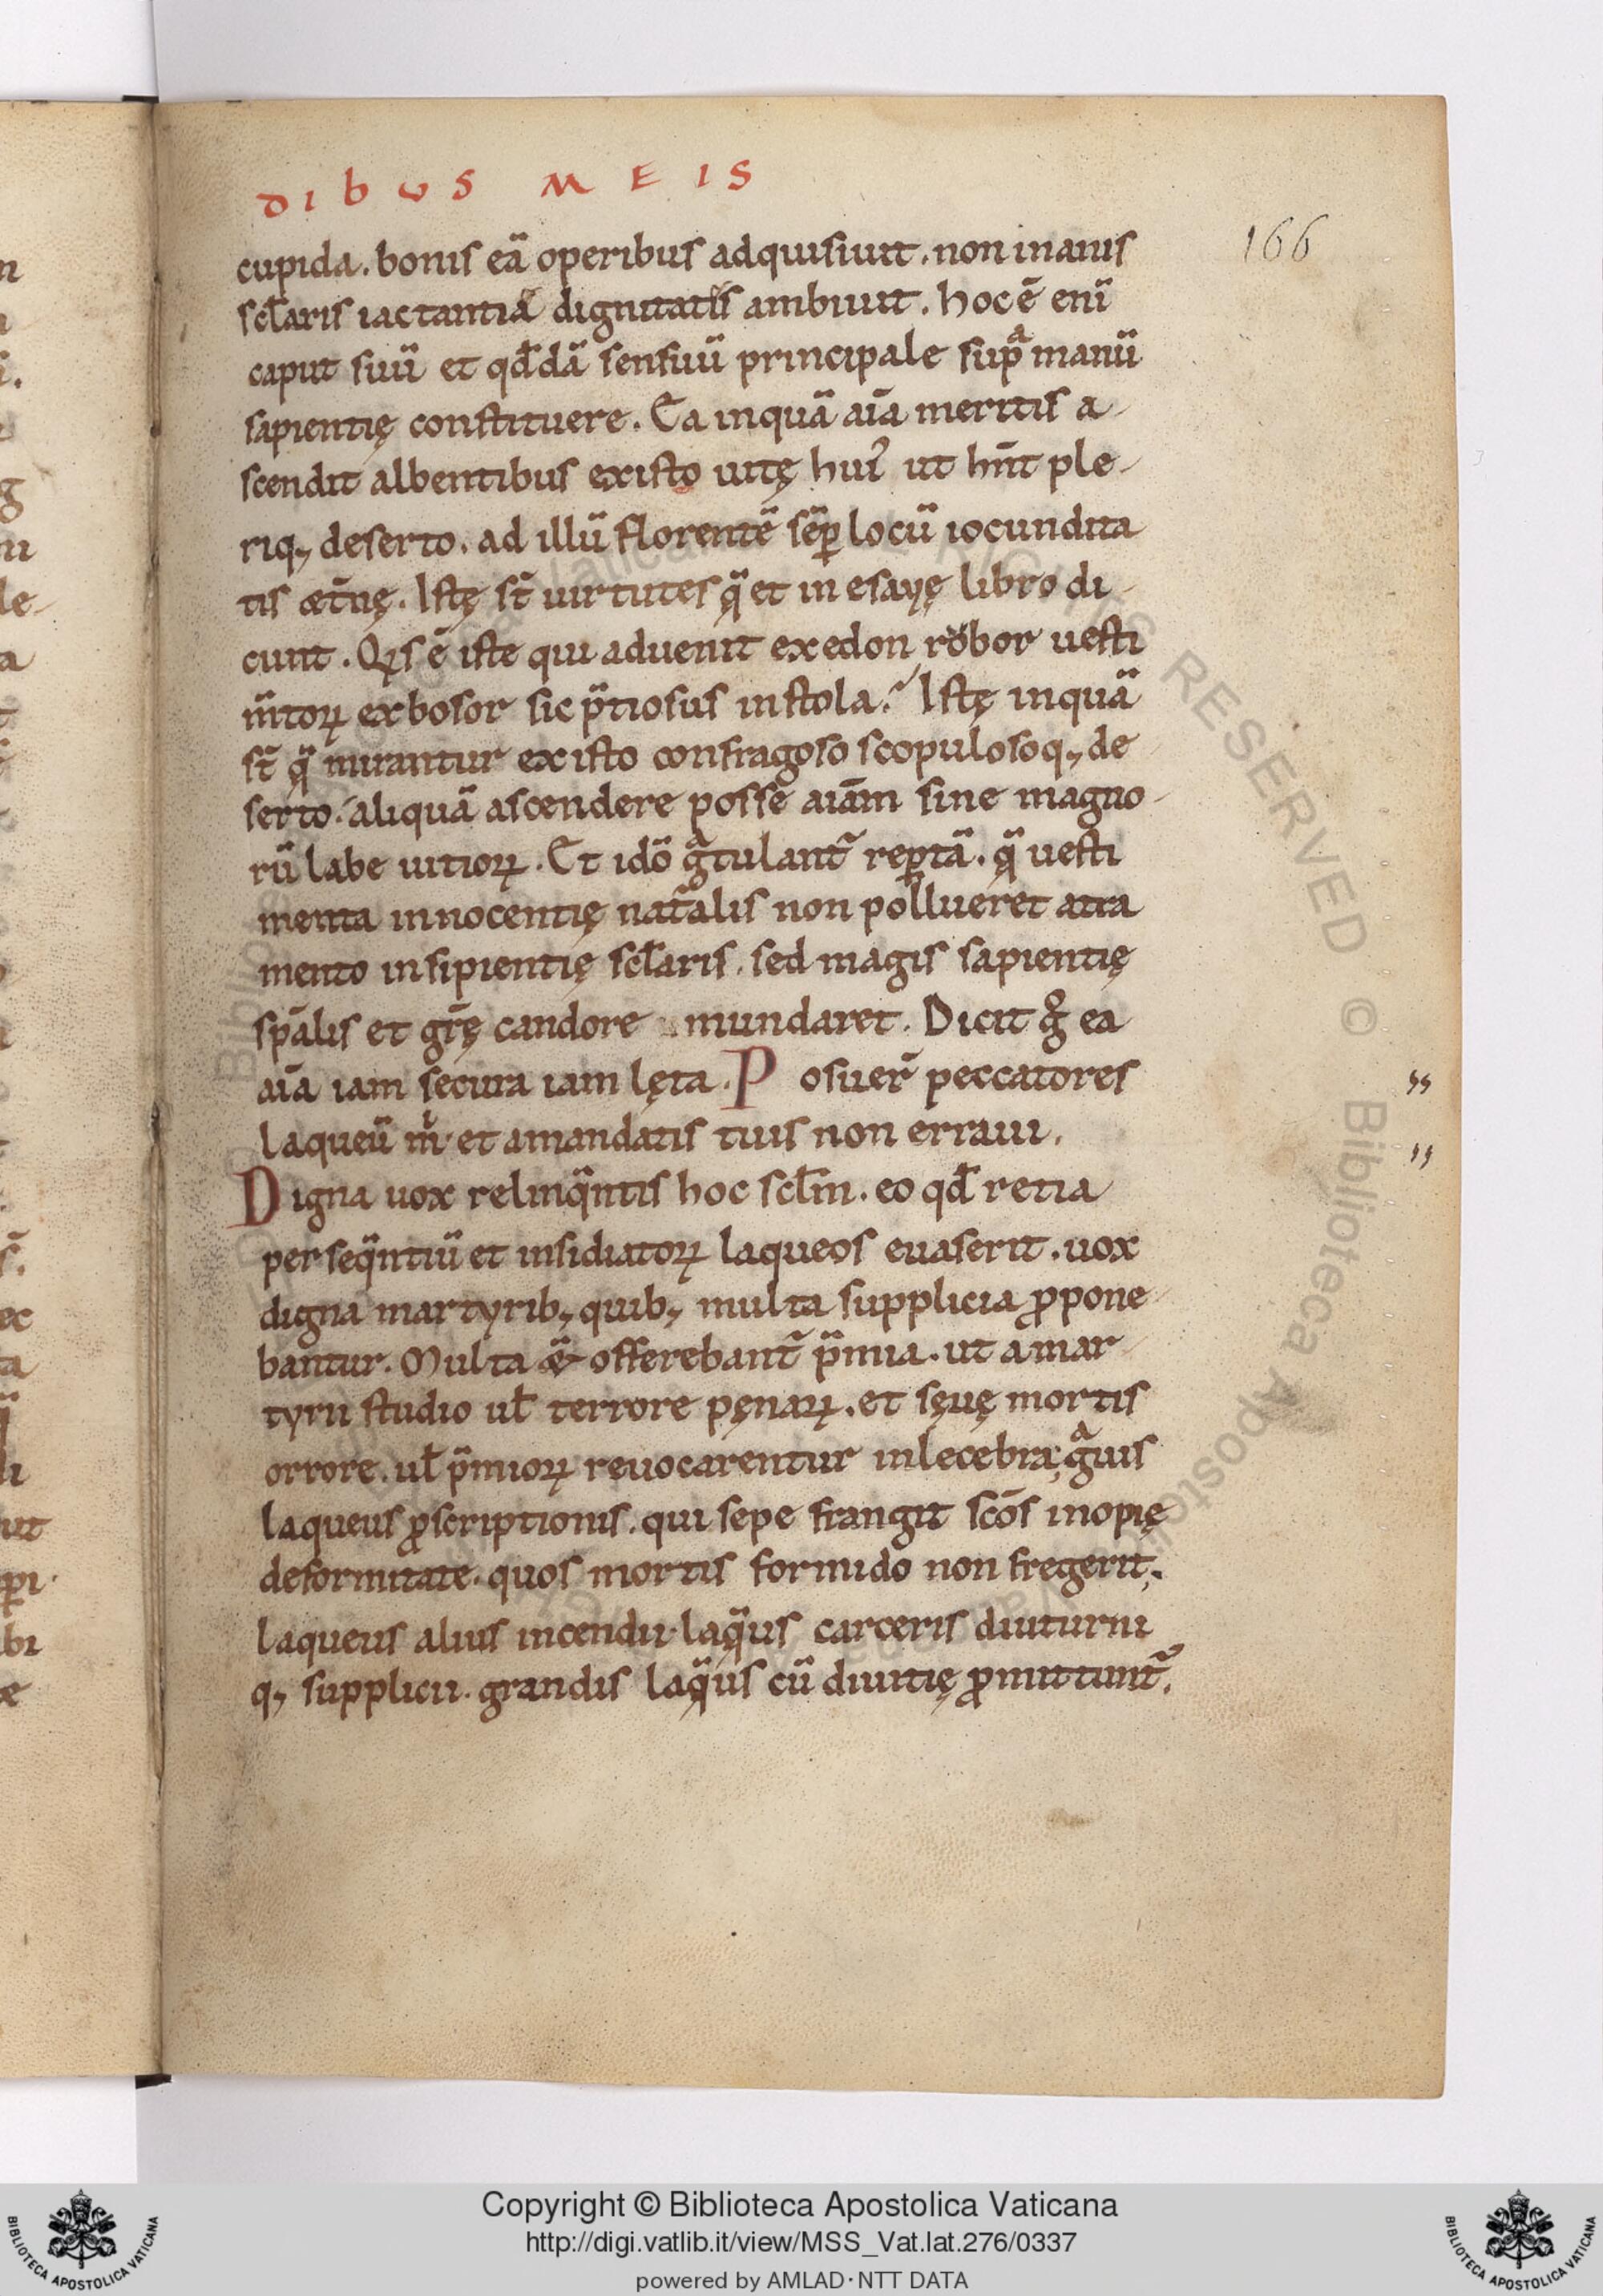 DIBUS MEIS
166
cupida. bonis eā operibus adquisiuit. non inanis
scl̄aris iactantiā dignitatis ambiuit. hoc ē enī
caput suū et qd̄dā sensuū principale supͣ manū
sapientię constituere. Ea inquā aīa meritis a-
scendit albentibus ex isto uitę huiꝰ ut hn̄t ple-
riq; deserto. ad illū florentē sēꝑ locū iocundita
tis ęt̄nę. Istę st̄ uirtutes q̄ et in esayę libro di-
cunt. Qis ē iste qui aduenit ex edon robor uesti
m̄toꝝ ex bosor sic p̄tiosus in stola? Istę inquā
st̄ q̄ mirantur ex isto confragoso scopulosoq; de
serto. aliquā ascendere posse aīam sine magno-
rū labe uitioꝝ. Et idō gͣtulant᷑ reꝑtā. q̄ uesti
menta innocentię nat᷑alis non pollueret atra
mento insipientię scl̄aris. sed magis sapientię
sp̄alis et gr̄ę candore mundaret. Dicit g̊ ea
aīa iam secura iam lęta. Posuer̄ peccatores
laqueū mͥ et amandatis tuis non erraui.
Digna uox relinq̄ntis hoc scl̄m. eo qd̄ retia
perseq̄ntiū et insidiatoꝝ laqueos euaserit. uox
digna martyrib; quib; multa supplicia ꝓpone
bantur. Multa & offerebant᷑ p̄mia. ut a mar-
tyrii studio ul̄ terrore pęnaꝝ. et sęuę mortis
orrore. ul̄ p̄mioꝝ reuocarentur inlecebra; gͣuis
laqueus ꝓscriptionis. qui sepe frangit scōs inopię
deformitate. quos mortis formido non fregerit.
laqueus alius incendii. laq̄us carceris diuturni
q; supplicii. grandis laq̄us cū diuitię ꝓmittunt᷑.
Copyright © Biblioteca Apostolica Vaticana
http://digi.vatlib.it/view/MSS_Vat.lat.276/0337
powered by AMLAD·NTT DATA